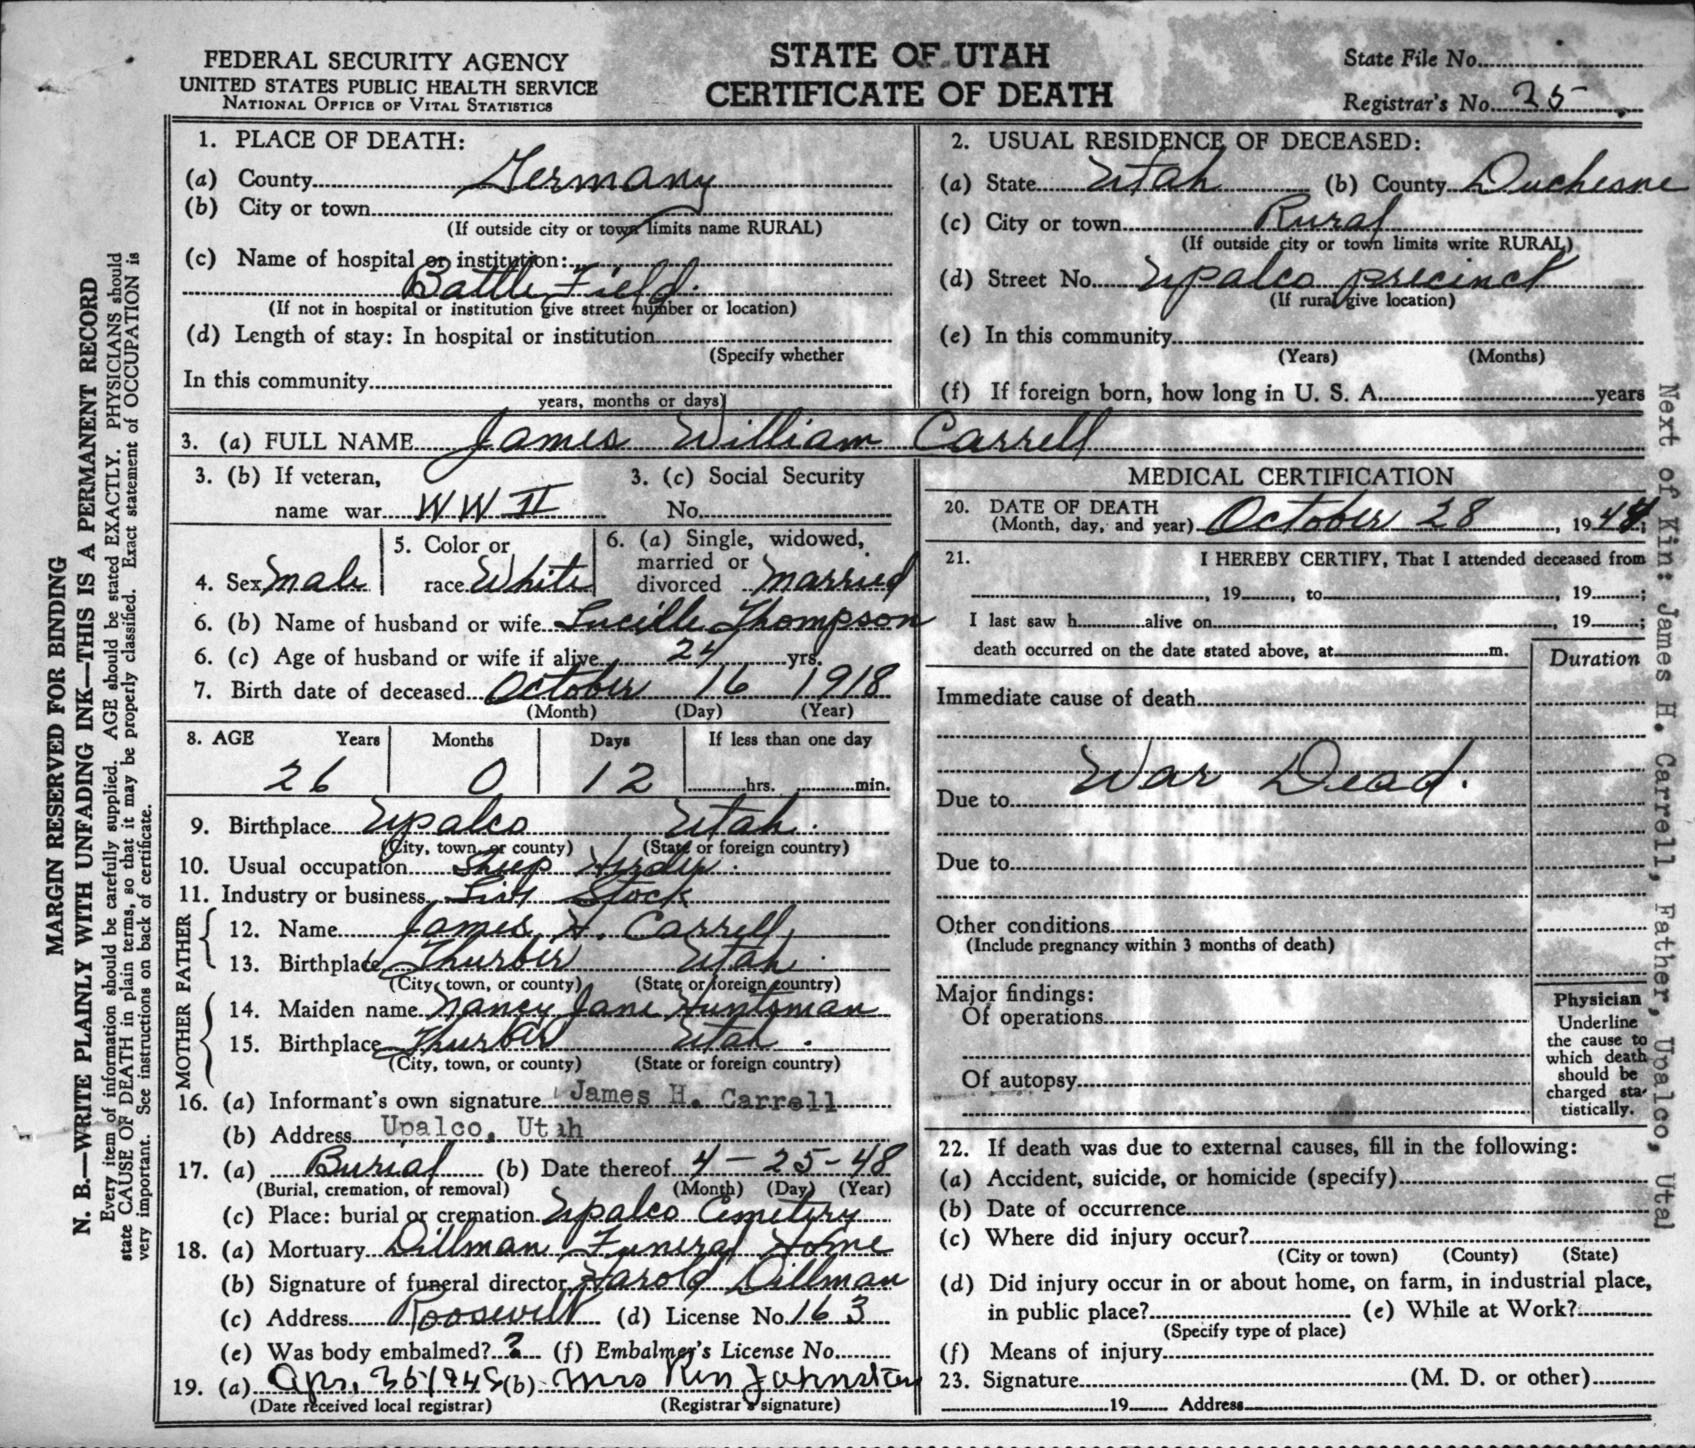 FEDERAL SECURITY AGENCY
UNITED STATES PUBLIC HEALTH SERVICE
NATIONAL OFFICE OF VITAL STATISTICS
STATE OF UTAH
CERTIFICATE OF DEATH
State File No.
Registrar's No. 25
1. PLACE OF DEATH:
(a) County Germany
(b) City or town
(If outside city or town limits name RURAL)
(c) Name of hospital or institution:
Battle Field.
(If not in hospital or institution give street number or location)
(d) Length of stay: In hospital or institution
(Specify whether
In this community
years, months or days)
2. USUAL RESIDENCE OF DECEASED:
(a) State Utah (b) County Duchesne
(c) City or town Rural
(If outside city or town limits write RURAL)
(d) Street No. Upalco precinct
(If rural give location)
(e) In this community
(Years) (Months)
(f) If foreign born, how long in U. S. A. years
3. (a) FULL NAME James William Carrell
3. (b) If veteran,
name war WW II
3. (c) Social Security
No.
4. Sex Male
5. Color or
race White
6. (a) Single, widowed,
married or
divorced married
6. (b) Name of husband or wife Lucille Thompson
6. (c) Age of husband or wife if alive 24 yrs.
7. Birth date of deceased October 16 1918
(Month) (Day) (Year)
8. AGE Years Months Days If less than one day
26 0 12 hrs. min.
9. Birthplace Upalco Utah.
(City, town, or county) (State or foreign country)
10. Usual occupation Sheep Herder.
11. Industry or business Live Stock
FATHER
12. Name James H. Carrell
13. Birthplace Thurber Utah.
(City, town, or county) (State or foreign country)
MOTHER
14. Maiden name Nancy Jane Huntsman
15. Birthplace Thurber Utah.
(City, town, or county) (State or foreign country)
16. (a) Informant's own signature James H. Carrell
(b) Address Upalco, Utah
17. (a) Burial (b) Date thereof 4-25-48
(Burial, cremation, or removal) (Month) (Day) (Year)
(c) Place: burial or cremation Upalco Cemetery
18. (a) Mortuary Dillman Funeral Home
(b) Signature of funeral director Harold Dillman
(c) Address Roosevelt (d) License No. 163
(e) Was body embalmed? ? (f) Embalmer's License No.
19. (a) Apr. 1948 (b) Mrs Ken Johnston
(Date received local registrar) (Registrar's signature)
MEDICAL CERTIFICATION
20. DATE OF DEATH
(Month, day, and year) October 28, 1944;
21. I HEREBY CERTIFY, That I attended deceased from
, 19 , to , 19 ;
I last saw h alive on , 19 ;
death occurred on the date stated above, at m.
Duration
Immediate cause of death
War Dead.
Due to
Due to
Other conditions
(Include pregnancy within 3 months of death)
Major findings:
Of operations
Of autopsy
Physician
Underline
the cause to
which death
should be
charged sta-
tistically.
22. If death was due to external causes, fill in the following:
(a) Accident, suicide, or homicide (specify)
(b) Date of occurrence
(c) Where did injury occur?
(City or town) (County) (State)
(d) Did injury occur in or about home, on farm, in industrial place,
in public place? (e) While at Work?
(Specify type of place)
(f) Means of injury
23. Signature (M. D. or other)
19 Address
MARGIN RESERVED FOR BINDING
N. B.—WRITE PLAINLY WITH UNFADING INK—THIS IS A PERMANENT RECORD
Every item of information should be carefully supplied. AGE should be stated EXACTLY. PHYSICIANS should
state CAUSE OF DEATH in plain terms, so that it may be properly classified. Exact statement of OCCUPATION is
very important. See instructions on back of certificate.
Next of Kin: James H. Carrell, Father, Upalco, Utah